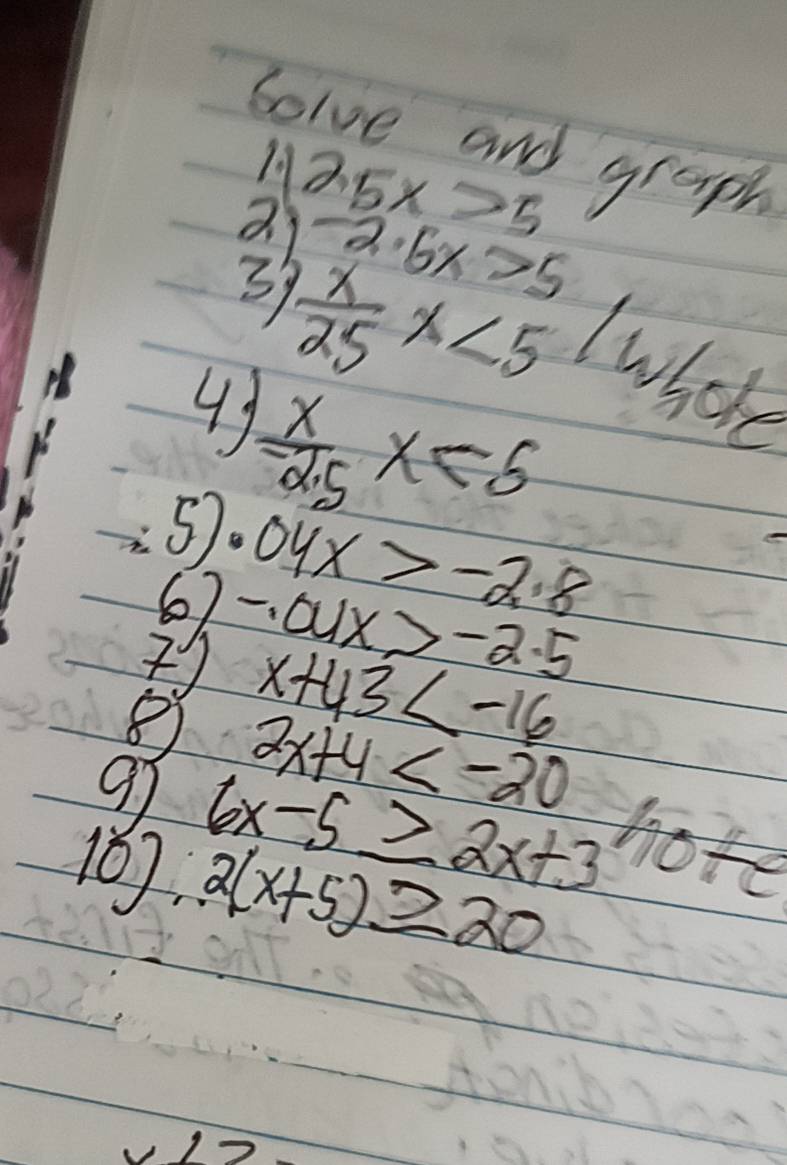 Solve and graph
1.) 2.5x > 5
2.) -2.5x > 5
3) x/25 x < 5 / Whole
4.) x/-2.5 x < 5
5) .04x > -2.8
6) -.04x > -2.5
7) x+43 < -16
8) 2x+4 < -20
9) 6x-5 ≥ 2x+3 note
10) 2(x+5) ≥ 20